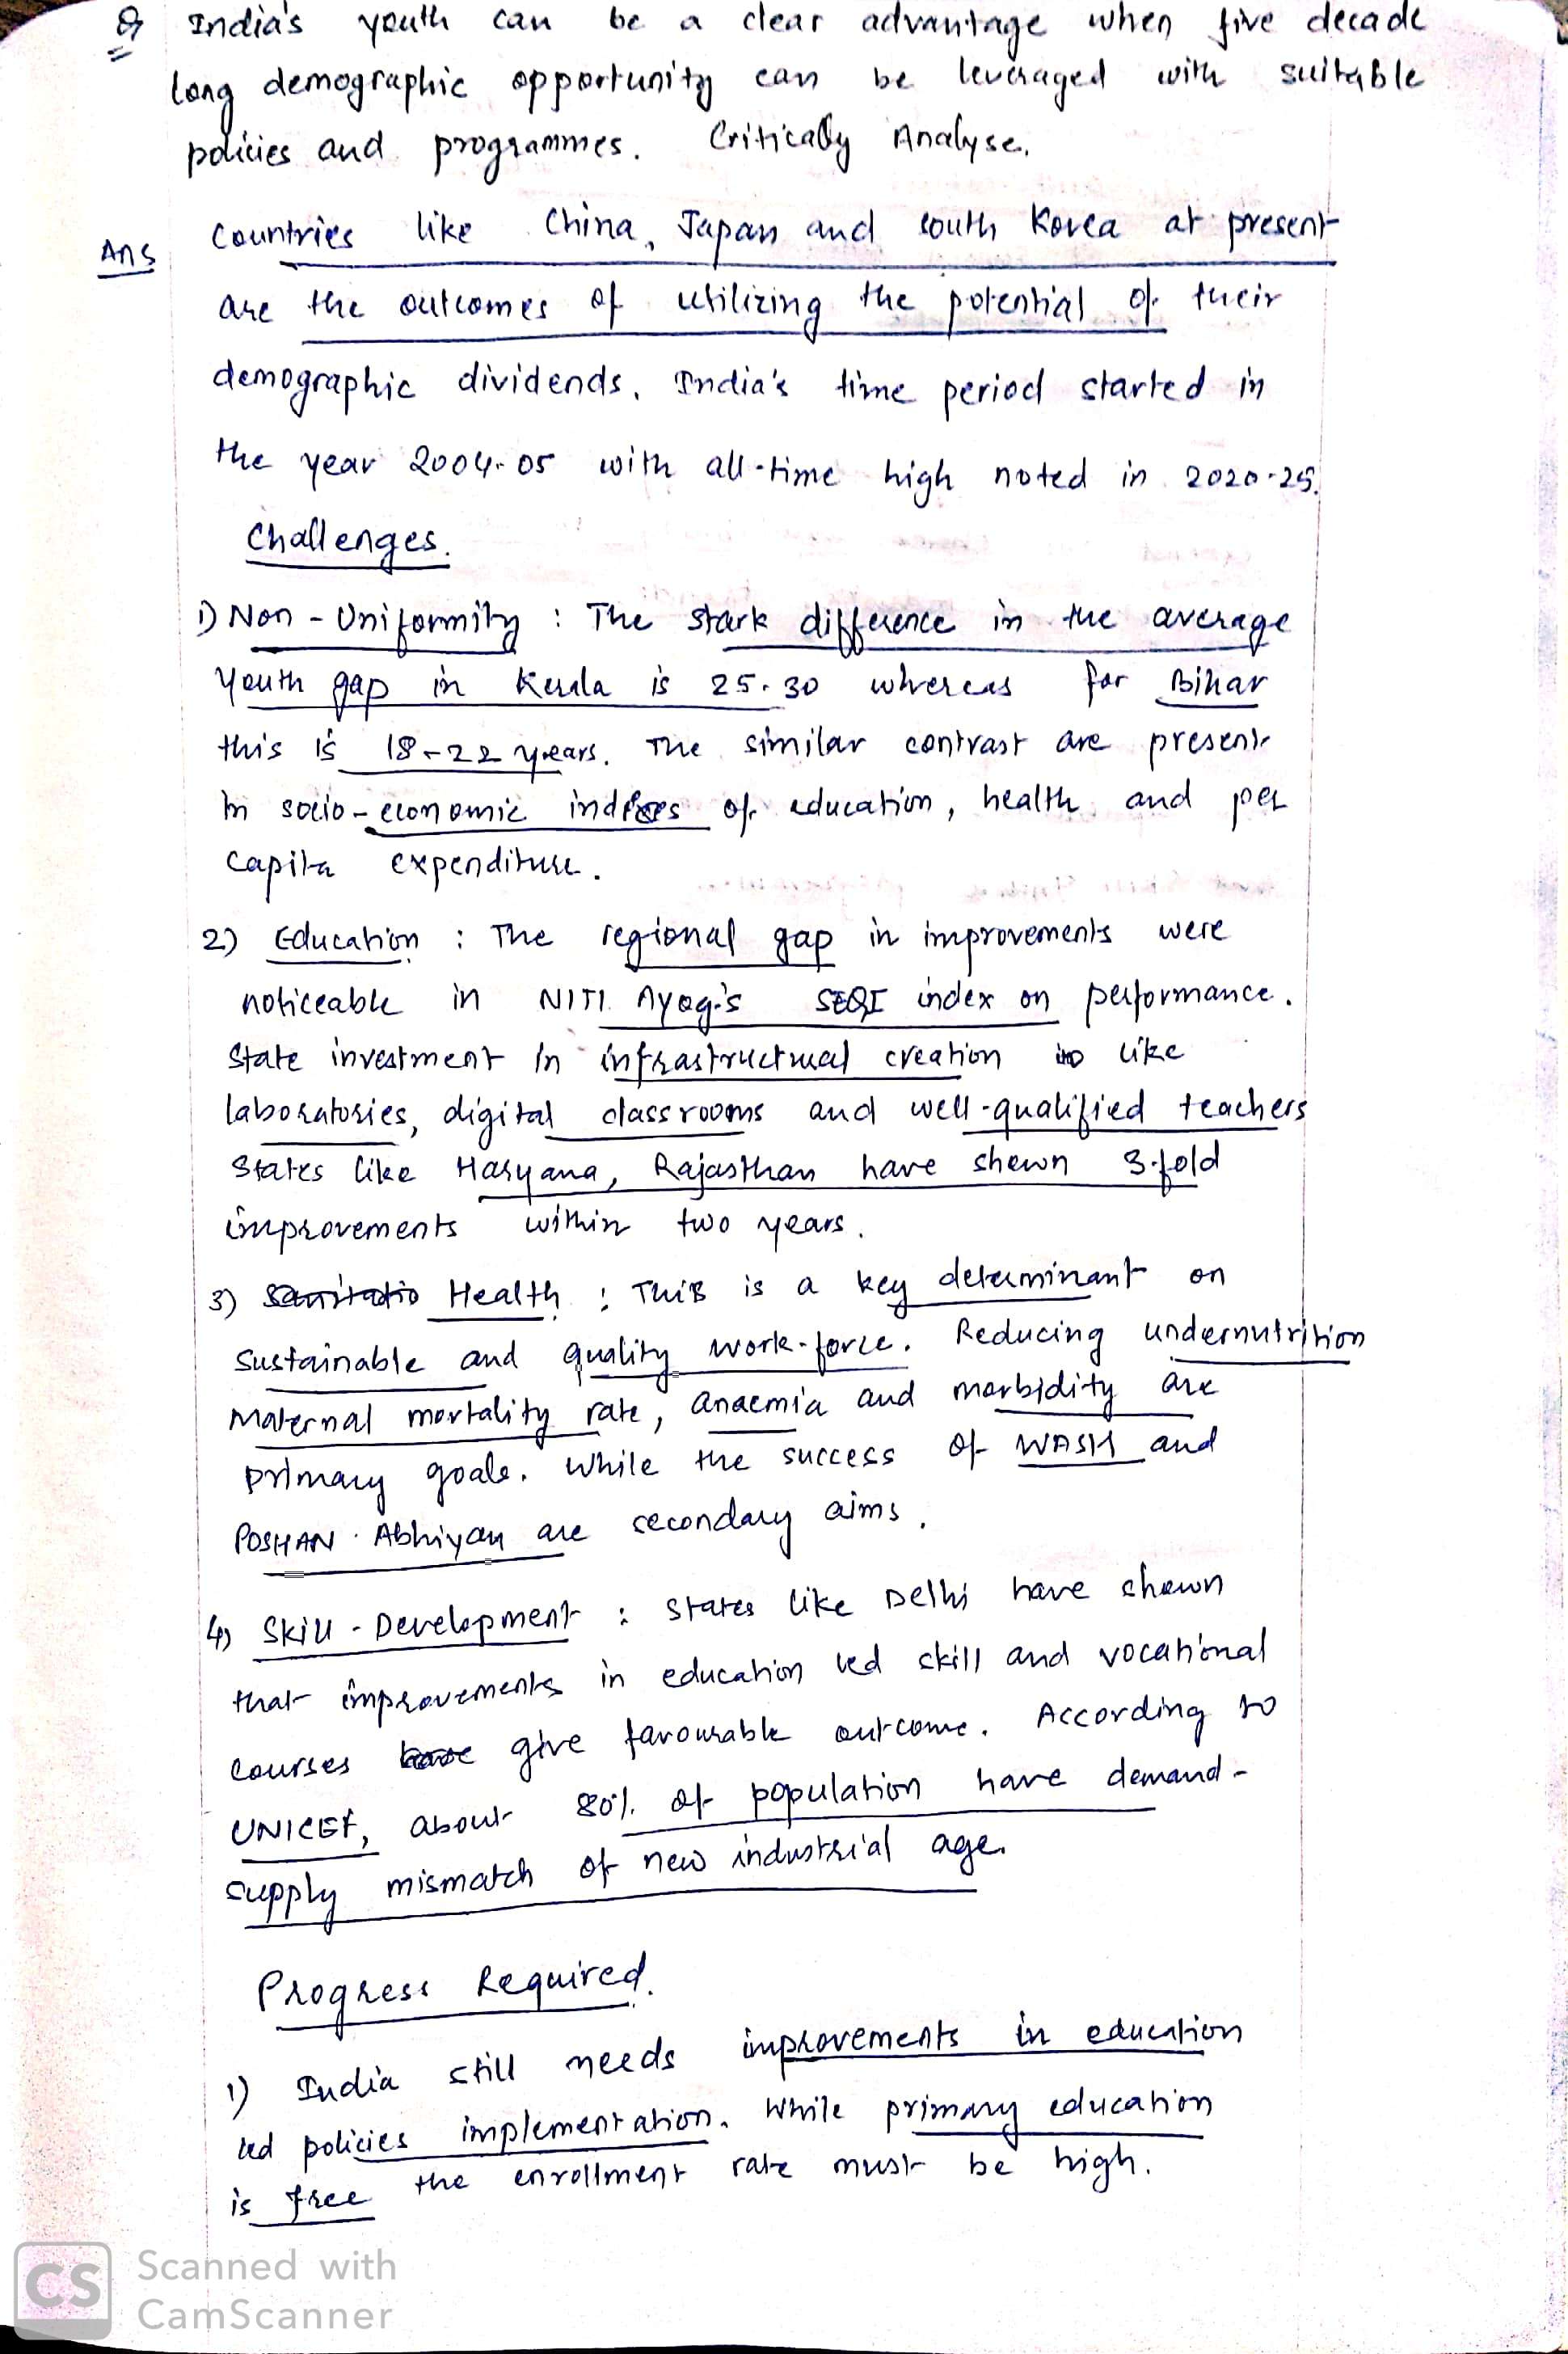 Q India's youth can be a clear advantage when five decade
long demographic opportunity can be leveraged with suitable
policies and programmes. Critically Analyse.
Ans Countries like China, Japan and south Korea at present
are the outcomes of utilizing the potential of their
demographic dividends. India's time period started in
the year 2004-05 with all-time high noted in 2020-25.
Challenges.
1) Non-Uniformity : The stark difference in the average
youth gap in Kerala is 25-30 whereas for Bihar
this is 18-22 years. The similar contrast are present
in socio-economic of education, health and per
capita expenditure.
2) Education : The regional gap in improvements were
noticeable in NITI Ayog's SEQI index on performance.
State investment in infrastructural creation like
laboratories, digital classrooms and well-qualified teachers
States like Haryana, Rajasthan have shown 3-fold
improvements within two years.
3) Health : This is a key determinant on
sustainable and quality work-force. Reducing undernutrition
Maternal mortality rate, anaemia and morbidity are
primary goals. While the success of WASH and
POSHAN Abhiyan are secondary aims.
4) Skill-Development : States like Delhi have shown
that improvements in education led skill and vocational
courses give favourable outcome. According to
UNICEF, about 80% of population have demand-
supply mismatch of new industrial age.
Progress Required.
1) India still needs improvements in education
led policies implementation. While primary education
is free the enrollment rate must be high.
CS Scanned with
CamScanner